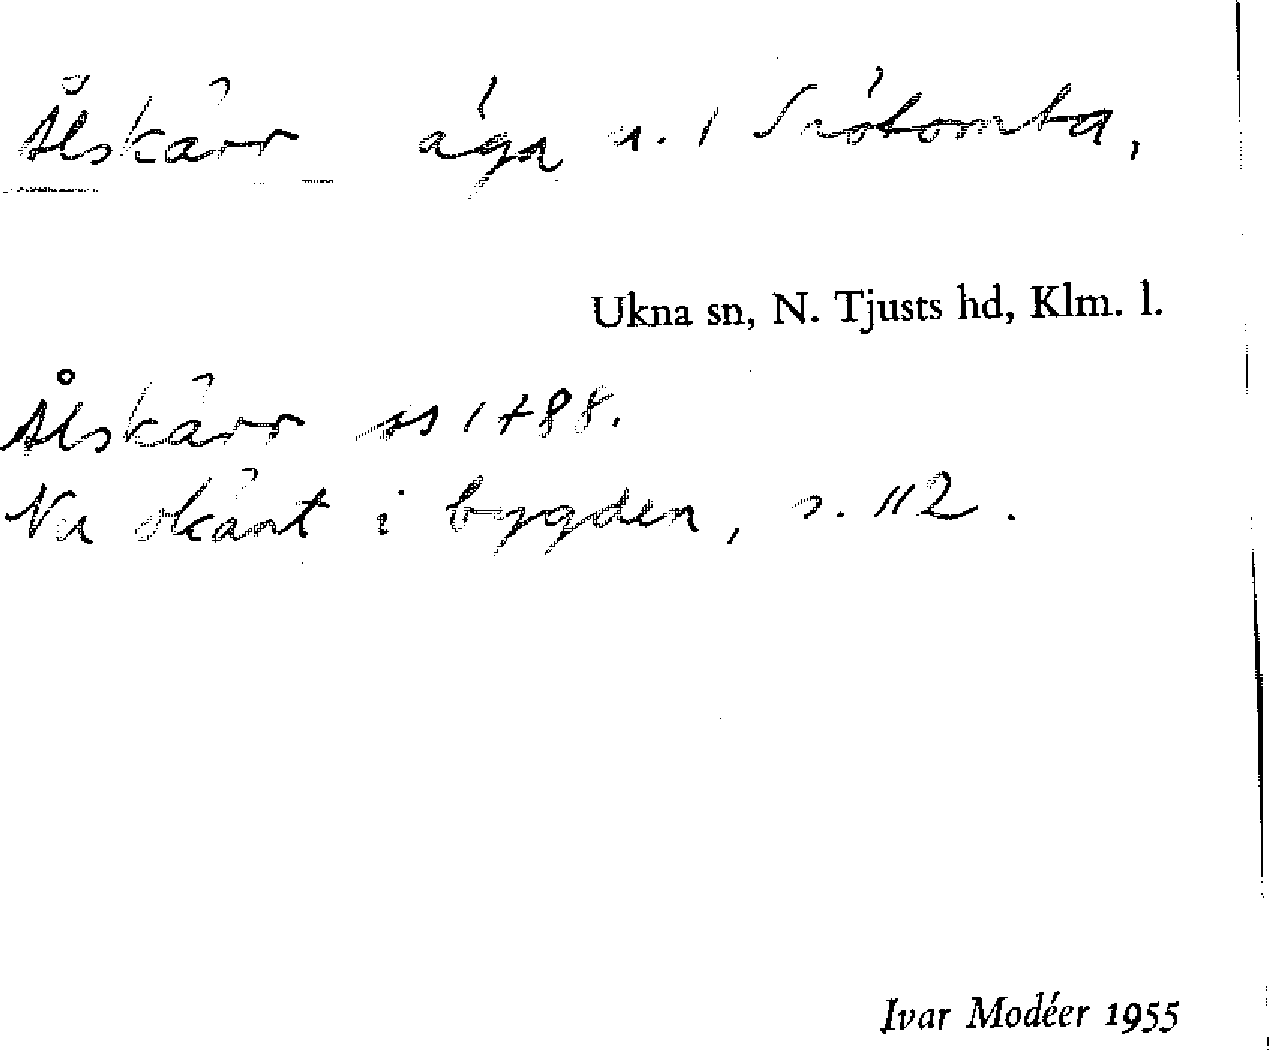 Ålskärr äga u. 1 Snötomta,
Ukna sn, N. Tjusts hd, Klm. l.
Ålskärr ss 1788.
Nu okänt i bygden, s. 112.
Ivar Modéer 1955